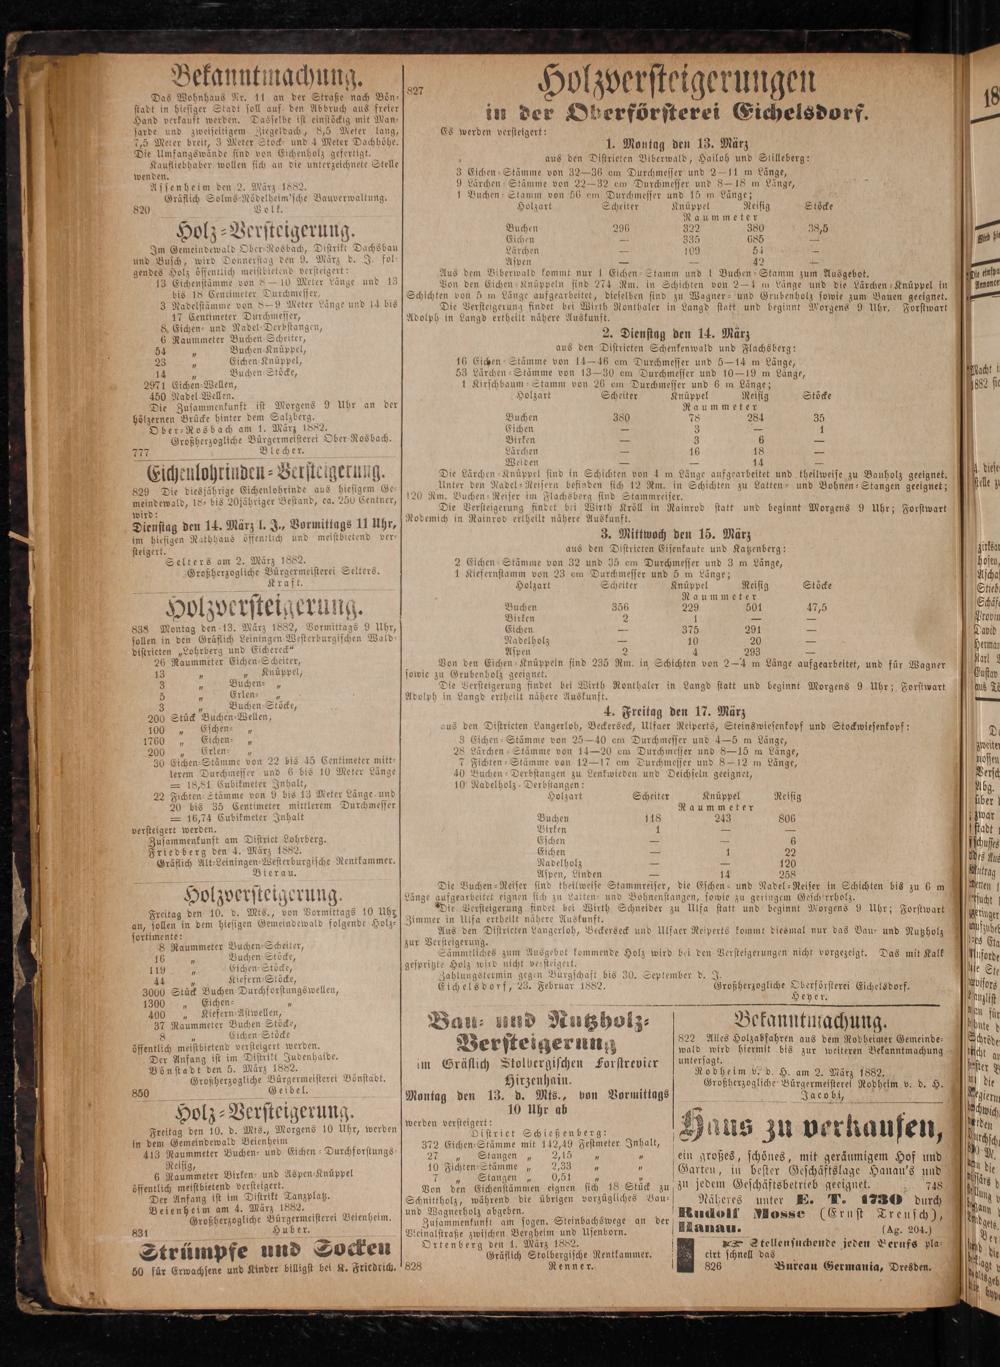 Bekanntmachung.
Das Wohnhaus Nr. 11 an der Straße nach Bön-
stadt in hiesiger Stadt soll auf den Abbruch aus freier
Hand verkauft werden. Dasselbe ist einstöckig mit Man-
sarde und zweiseitigem Ziegeldach, 8,5 Meter lang,
7,5 Meter breit, 3 Meter Stock- und 4 Meter Dachhöhe.
Die Umfangswände sind von Eichenholz gefertigt.
Kaufliebhaber wollen sich an die unterzeichnete Stelle
wenden.
Assenheim den 2. März 1882.
Gräflich Solms-Rödelheim'sche Bauverwaltung.
820 Volk.
Holz-Versteigerung.
Im Gemeindewald Ober-Rosbach, Distrikt Dachsbau
und Busch, wird Donnerstag den 9. März d. J. fol-
gendes Holz öffentlich meistbietend versteigert:
13 Eichenstämme von 8—10 Meter Länge und 13
bis 18 Centimeter Durchmesser,
3 Nadelstämme von 8—9 Meter Länge und 14 bis
17 Centimeter Durchmesser,
8 Eichen- und Nadel-Derbstangen,
6 Raummeter Buchen-Scheiter,
54 „ Buchen-Knüppel,
23 „ Eichen-Knüppel,
14 „ Buchen-Stöcke,
2971 Eichen-Wellen,
450 Nadel-Wellen.
Die Zusammenkunft ist Morgens 9 Uhr an der
hölzernen Brücke hinter dem Salzberg.
Ober-Rosbach am 1. März 1882.
Großherzogliche Bürgermeisterei Ober-Rosbach.
777 Blecher.
Eichenlohrinden-Versteigerung.
829 Die diesjährige Eichenlohrinde aus hiesigem Ge-
meindewald, 18- bis 20jähriger Bestand, ca. 250 Centner,
wird:
Dienstag den 14. März l. J., Vormittags 11 Uhr,
im hiesigen Rathhaus öffentlich und meistbietend ver-
steigert.
Selters am 2. März 1882.
Großherzogliche Bürgermeisterei Selters.
Kraft.
Holzversteigerung.
838 Montag den 13. März 1882, Vormittags 9 Uhr,
sollen in den Gräflich Leiningen-Westerburgischen Wald-
districten „Lohrberg und Eichereck“
26 Raummeter Eichen-Scheiter,
13 „ „ Knüppel,
3 „ Buchen- „
5 „ Erlen- „
3 „ Buchen-Stöcke,
200 Stück Buchen-Wellen,
100 „ Eichen- „
1760 „ Eichen- „
200 „ Erlen- „
30 Eichen-Stämme von 22 bis 45 Centimeter mitt-
lerem Durchmesser und 6 bis 10 Meter Länge
= 18,81 Cubikmeter Inhalt,
22 Fichten-Stämme von 9 bis 13 Meter Länge und
20 bis 35 Centimeter mittlerem Durchmesser
= 16,74 Cubikmeter Inhalt
versteigert werden.
Zusammenkunft am District Lohrberg.
Friedberg den 4. März 1882.
Gräflich Alt-Leiningen-Westerburgische Rentkammer.
Bierau.
Holzversteigerung.
Freitag den 10. d. Mts., von Vormittags 10 Uhr
an, sollen in dem hiesigen Gemeindewald folgende Holz-
sortimente:
8 Raummeter Buchen-Scheiter,
16 „ Buchen-Stöcke,
119 „ Eichen-Stöcke,
44 „ Kiefern-Stöcke,
3000 Stück Buchen-Durchforstungswellen,
1300 „ Eichen- „
400 „ Kiefern-Astwellen,
37 Raummeter Buchen-Stöcke,
8 „ Eichen-Stöcke
öffentlich meistbietend versteigert werden.
Der Anfang ist im Distrikt Judenhalbe.
Bönstadt den 5. März 1882.
Großherzogliche Bürgermeisterei Bönstadt.
850 Geibel.
Holz-Versteigerung.
Freitag den 10. d. Mts., Morgens 10 Uhr, werden
in dem Gemeindewald Beienheim
413 Raummeter Buchen- und Eichen-Durchforstungs-
Reisig,
6 Raummeter Birken- und Aspen-Knüppel
öffentlich meistbietend versteigert.
Der Anfang ist im Distrikt Tanzplatz.
Beienheim am 4. März 1882.
Großherzogliche Bürgermeisterei Beienheim.
831 Huber.
Strümpfe und Socken
50 für Erwachsene und Kinder billigst bei K. Friedrich.
827 Holzversteigerungen
in der Oberförsterei Eichelsdorf.
Es werden versteigert:
1. Montag den 13. März
aus den Districten Biberwald, Hailoh und Stilleberg:
3 Eichen-Stämme von 32—36 cm Durchmesser und 2—11 m Länge,
9 Lärchen-Stämme von 22—32 cm Durchmesser und 8—18 m Länge,
1 Buchen-Stamm von 56 cm Durchmesser und 15 m Länge;
Holzart Scheiter Knüppel Reisig Stöcke
Raummeter
Buchen 296 322 380 38,5
Eichen — 335 685 —
Lärchen — 109 54 —
Aspen — — 42 —
Aus dem Biberwald kommt nur 1 Eichen-Stamm und 1 Buchen-Stamm zum Ausgebot.
Von den Eichen-Knüppeln sind 274 Rm. in Schichten von 2—4 m Länge und die Lärchen-Knüppel in
Schichten von 5 m Länge aufgearbeitet, dieselben sind zu Wagner- und Grubenholz sowie zum Bauen geeignet.
Die Versteigerung findet bei Wirth Ronthaler in Langd statt und beginnt Morgens 9 Uhr. Forstwart
Adolph in Langd ertheilt nähere Auskunft.
2. Dienstag den 14. März
aus den Districten Schenkenwald und Flachsberg:
16 Eichen-Stämme von 14—46 cm Durchmesser und 5—14 m Länge,
53 Lärchen-Stämme von 13—30 cm Durchmesser und 10—19 m Länge,
1 Kirschbaum-Stamm von 26 cm Durchmesser und 6 m Länge;
Holzart Scheiter Knüppel Reisig Stöcke
Raummeter
Buchen 380 78 284 35
Eichen — 3 — 1
Birken — 3 6 —
Lärchen — 16 18 —
Weiden — — 14 —
Die Lärchen-Knüppel sind in Schichten von 4 m Länge aufgearbeitet und theilweise zu Bauholz geeignet.
Unter den Nadel-Reisern befinden sich 12 Rm. in Schichten zu Latten- und Bohnen-Stangen geeignet;
120 Rm. Buchen-Reiser im Flachsberg sind Stammreiser.
Die Versteigerung findet bei Wirth Kröll in Rainrod statt und beginnt Morgens 9 Uhr; Forstwart
Rodemich in Rainrod ertheilt nähere Auskunft.
3. Mittwoch den 15. März
aus den Districten Eisenkaute und Katzenberg:
2 Eichen-Stämme von 32 und 35 cm Durchmesser und 3 m Länge,
1 Kiefernstamm von 23 cm Durchmesser und 5 m Länge;
Holzart Scheiter Knüppel Reisig Stöcke
Raummeter
Buchen 356 229 501 47,5
Birken 2 1 — —
Eichen — 375 291 —
Nadelholz — 10 20 —
Aspen 2 4 293 —
Von den Eichen-Knüppeln sind 235 Rm. in Schichten von 2—4 m Länge aufgearbeitet, und für Wagner
sowie zu Grubenholz geeignet.
Die Versteigerung findet bei Wirth Ronthaler in Langd statt und beginnt Morgens 9 Uhr; Forstwart
Adolph in Langd ertheilt nähere Auskunft.
4. Freitag den 17. März
aus den Districten Langerloh, Beckerseck, Ulfaer Reiperts, Steinswiesenkopf und Stockwiesenkopf:
3 Eichen-Stämme von 25—40 cm Durchmesser und 4—5 m Länge,
28 Lärchen-Stämme von 14—20 cm Durchmesser und 8—15 m Länge,
7 Fichten-Stämme von 12—17 cm Durchmesser und 8—12 m Länge,
40 Buchen-Derbstangen zu Lenkwieden und Deichseln geeignet,
10 Nadelholz-Derbstangen:
Holzart Scheiter Knüppel Reisig
Raummeter
Buchen 118 243 806
Birken 1 — —
Eschen — — 6
Eichen — 1 22
Nadelholz — — 120
Aspen, Linden — 14 258
Die Buchen-Reiser sind theilweise Stammreiser, die Eschen- und Nadel-Reiser in Schichten bis zu 6 m
Länge aufgearbeitet eignen sich zu Latten- und Bohnenstangen, sowie zu geringem Geschirrholz.
Die Versteigerung findet bei Wirth Schneider zu Ulfa statt und beginnt Morgens 9 Uhr; Forstwart
Zimmer in Ulfa ertheilt nähere Auskunft.
Aus den Districten Langerloh, Beckerseck und Ulfaer Reiperts kommt diesmal nur das Bau- und Nutzholz
zur Versteigerung.
Sämmtliches zum Ausgebot kommende Holz wird bei den Versteigerungen nicht vorgezeigt. Das mit Kalk
gespritzte Holz wird nicht versteigert.
Zahlungstermin gegen Bürgschaft bis 30. September d. J.
Eichelsdorf, 23. Februar 1882. Großherzogliche Oberförsterei Eichelsdorf.
Heyer.
Bau- und Nutzholz-
Versteigerung
im Gräflich Stolbergischen Forstrevier
Hirzenhain.
Montag den 13. d. Mts., von Vormittags
10 Uhr ab
werden versteigert:
District Schießenberg:
372 Eichen-Stämme mit 142,49 Festmeter Inhalt,
27 „ Stangen „ 2,15 „ „
10 Fichten-Stämme „ 2,33 „ „
7 „ Stangen „ 0,51 „ „
Von den Eichenstämmen eignen sich 18 Stück zu
Schnittholz, während die übrigen vorzügliches Bau-
und Wagnerholz abgeben.
Zusammenkunft am sogen. Steinbachswege an der
Vicinalstraße zwischen Bergheim und Usenborn.
Ortenberg den 1. März 1882.
Gräflich Stolbergische Rentkammer.
828 Renner.
Bekanntmachung.
822 Alles Holzabfahren aus dem Rodheimer Gemeinde-
wald wird hiermit bis zur weiteren Bekanntmachung
untersagt.
Rodheim v. d. H. am 2. März 1882.
Großherzogliche Bürgermeisterei Rodheim v. d. H.
Jacobi,
Haus zu verkaufen,
ein großes, schönes, mit geräumigem Hof und
Garten, in bester Geschäftslage Hanau's und
zu jedem Geschäftsbetrieb geeignet. 748
Näheres unter E. T. 1730 durch
Rudolf Mosse (Ernst Treusch),
Hanau. (Ag. 204.)
☞ Stellensuchende jeden Berufs pla-
cirt schnell das
826 Bureau Germania, Dresden.
18